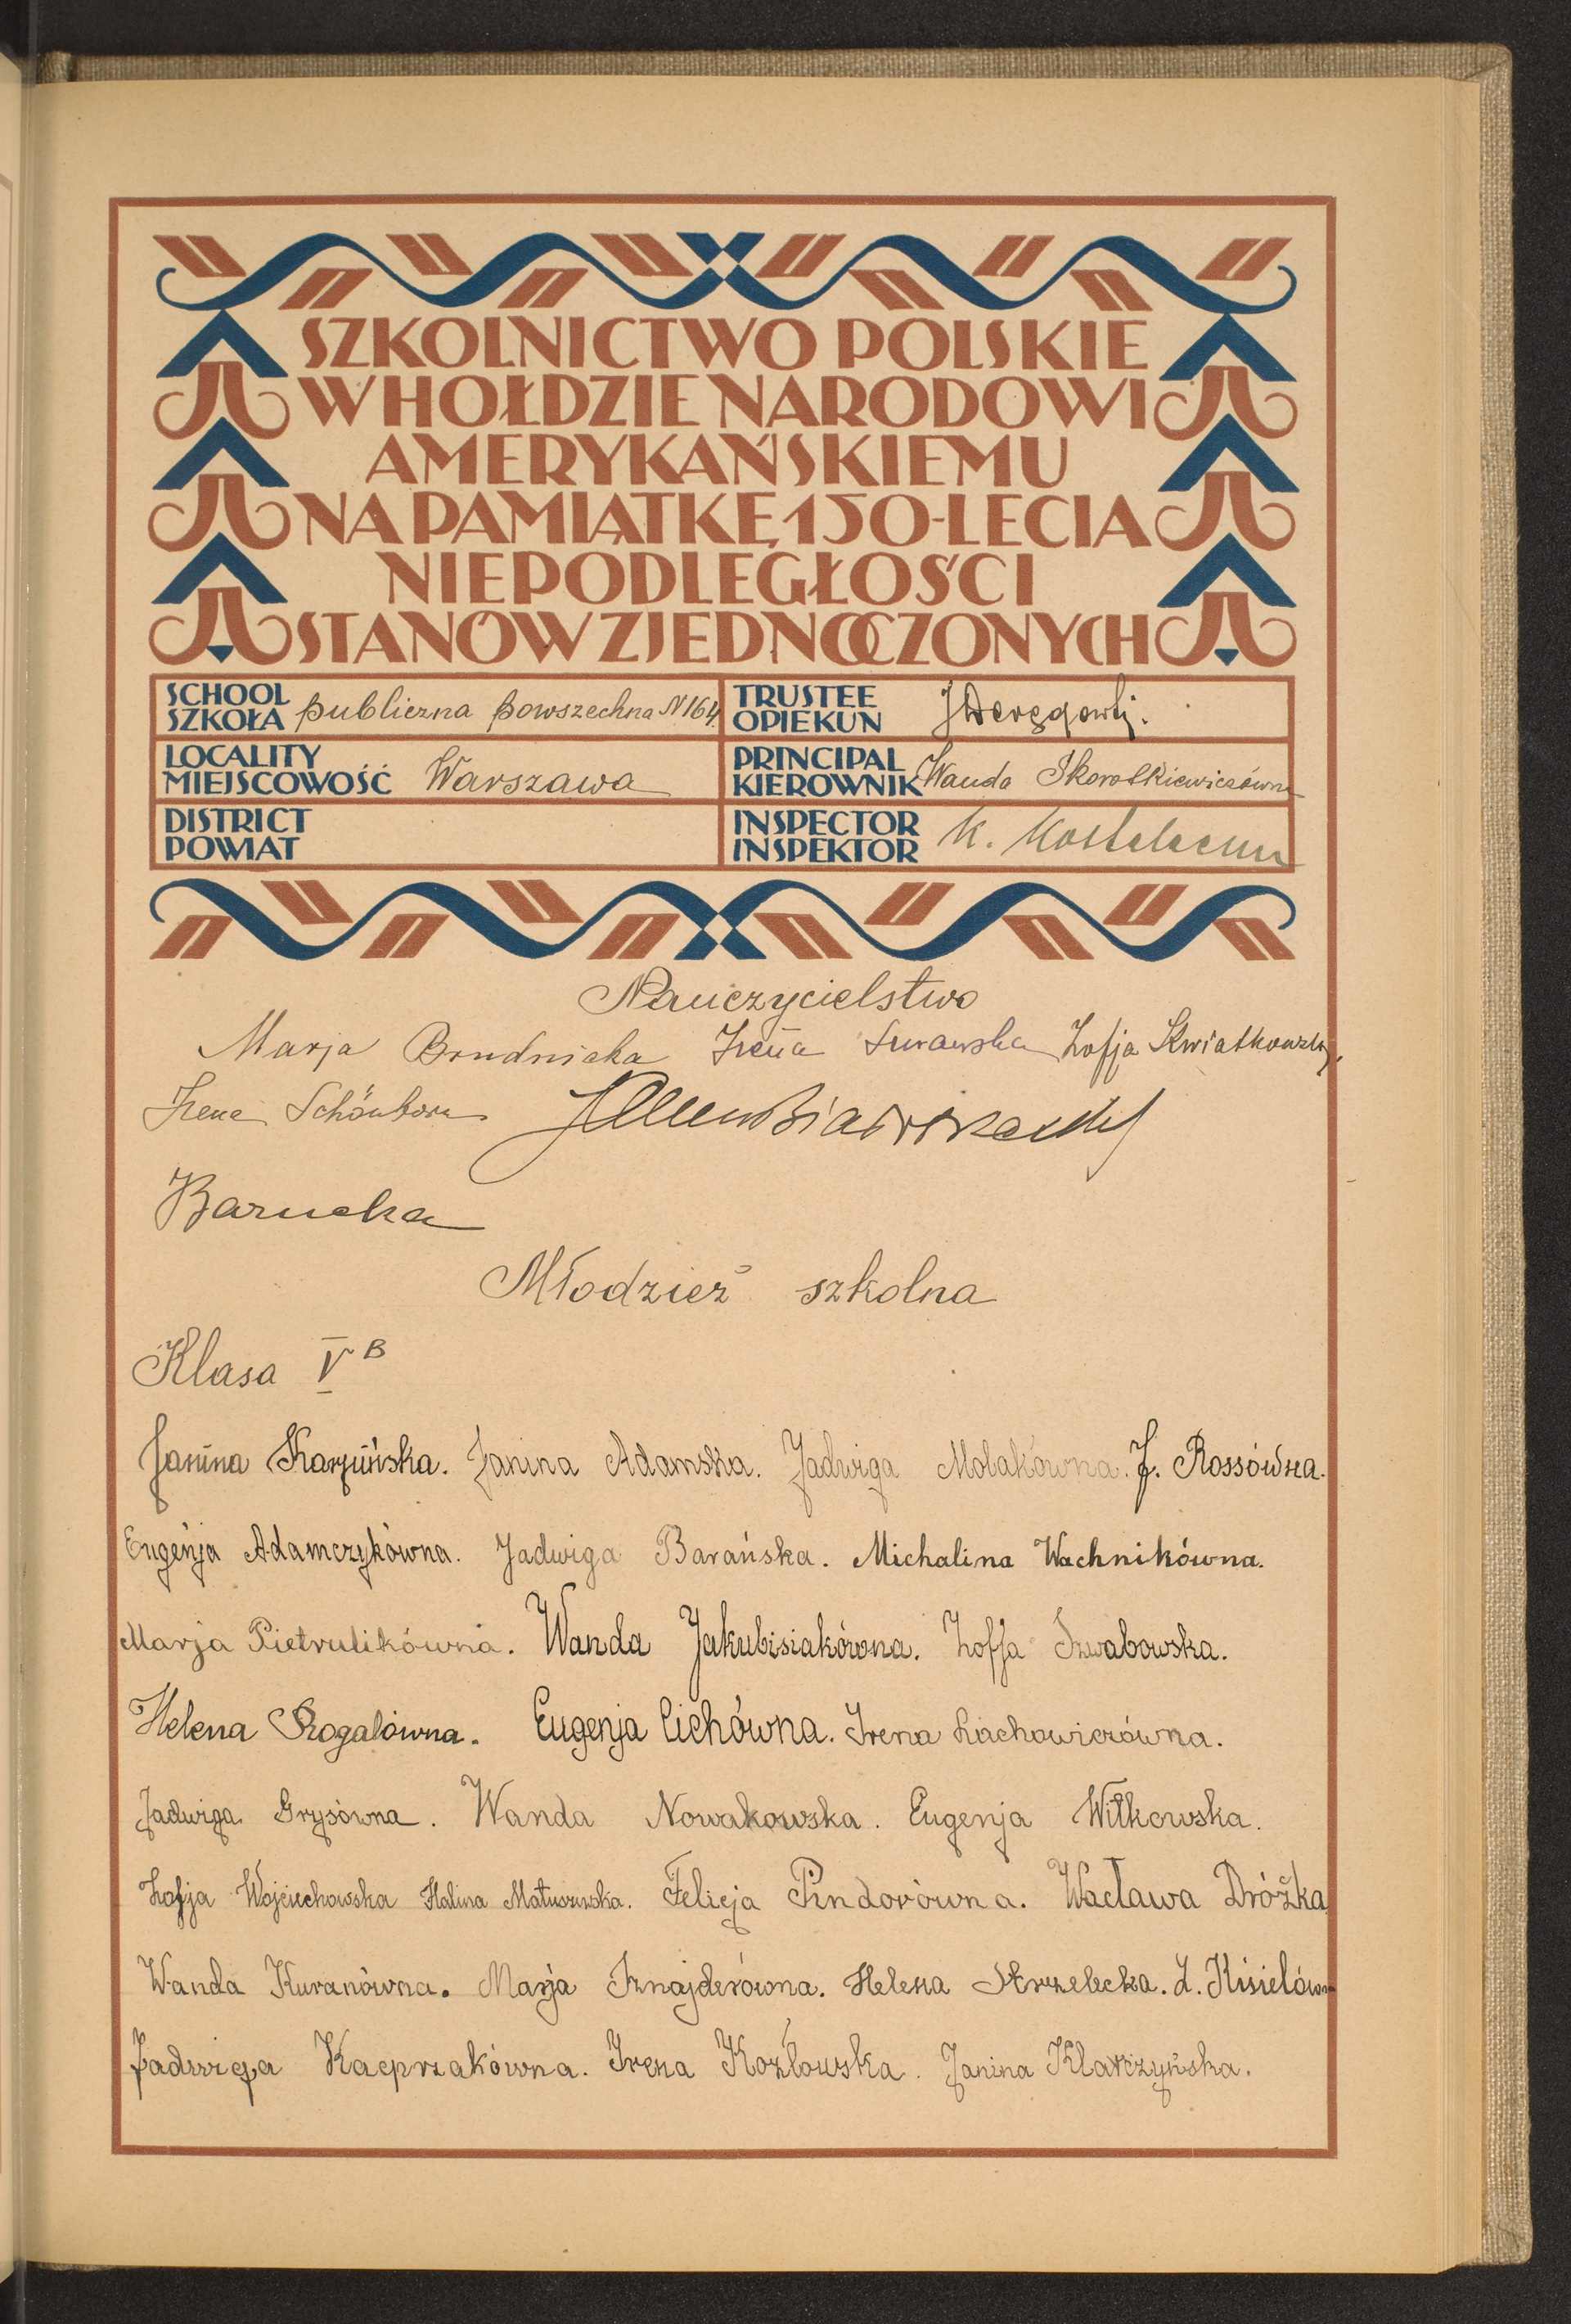 SZKOLNICTWO POLSKIE
W HOŁDZIE NARODOWI
AMERYKAŃSKIEMU
NA PAMIĄTKĘ 150-LECIA
NIEPODLEGŁOŚCI
STANÓW ZJEDNOCZONYCH
SCHOOL
SZKOŁA publiczna powszechna N164.
TRUSTEE
OPIEKUN
LOCALITY
MIEJSCOWOŚĆ Warszawa
PRINCIPAL
KIEROWNIK Wanda Skorotkiewiczówna
DISTRICT
POWIAT
INSPECTOR
INSPEKTOR K.
Nauczycielstwo
Marja Brudnicka Irena Surawska Zofja Kwiatkowska
Irena Schönborn
Barucka
Młodzież szkolna
Klasa V B
Janina Karpińska. Janina Adamska. Jadwiga Molakówna. J. Rossówna.
Eugenja Adamczykówna. Jadwiga Barańska. Michalina Wachnikówna.
Marja Pietrulikówna. Wanda Jakubisiakówna. Zofja Szwabowska.
Helena Rogalówna. Eugenja Cichówna. Irena Lachowiczówna.
Jadwiga Grysówna. Wanda Nowakowska. Eugenja Witkowska.
Zofja Wojciechowska Halina Matuszewska. Felicja Pindorówna. Wacława Dróżka
Wanda Kuranówna. Marja Sznajderówna. Helena Strzelecka. Z. Kisielówna
Jadwiga Kacprzakówna. Irena Kozłowska. Janina Klarzyńska.